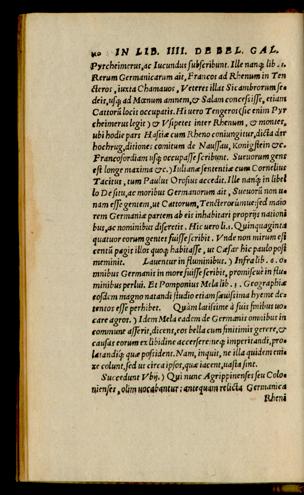 40 IN LIB. IIII. DE BEL. GAL.
Pyrcheimerus, ac Iucundus subscribunt. Ille nanq; lib. 1.
Rerum Germanicarum ait, Francos ad Rhenum in Ten
cteros, iuxta Chamauos, Veteres illas Sicambrorum se
deis, usq; ad Mœnum amnem, & Salam concessisse, etiam
Cattorū locis occupatis. Hi uero Tengeres (sic enim Pyr
cheimerus legit) & Vsipetes inter Rhenum, & montes,
ubi hodie pars Hassiæ cum Rheno coniungitur, dicta der
hochrug, ditiones comitum de Nassau, Konigstein &c.
Francofordiam usq; occupasse scribunt. Sueuorum gens
est longe maxima &c.) Iuliana sententia cum Cornelius
Tacitus, tum Paulus Orosius accedit. Ille nanq; in libel
lo De situ, ac moribus Germanorum ait, Sueuorū non u-
nam esse gentem, ut Cattorum, Tencterorumue: sed maio
rem Germaniæ partem ab eis inhabitari proprijs nationi
bus, ac nominibus discretis. Hic uero li.1. Quinquaginta
quatuor eorum gentes fuisse scribit. Vnde non mirum est
centū pagis illos quoq; habuisse, ut Cæsar hic paulo post
meminit. Lauentur in fluminibus.) Infra lib. 6. o-
mnibus Germanis in more fuisse scribit, promiscue in flu-
minibus perlui. Et Pomponius Mela lib. 3. Geographiæ
eosdem magno natandi studio etiam sæuissima hyeme de-
tentos esse perhibet. Quàm latissime à suis finibus ua-
care agros.) Idem Mela eadem de Germanis omnibus in
commune asserit, dicens, eos bella cum finitimis gerere, &
causas eorum ex libidine accersere: neq; imperitandi, pro-
latandisq; quæ possident. Nam, inquit, ne illa quidem eni
xe colunt, sed ut circa ipsos, quæ iacent, uasta sint.
Succedunt Vbij.) Qui nunc Agrippinenses seu Colo-
nienses, olim uocabantur: antequam relicta Germanica
Rheni